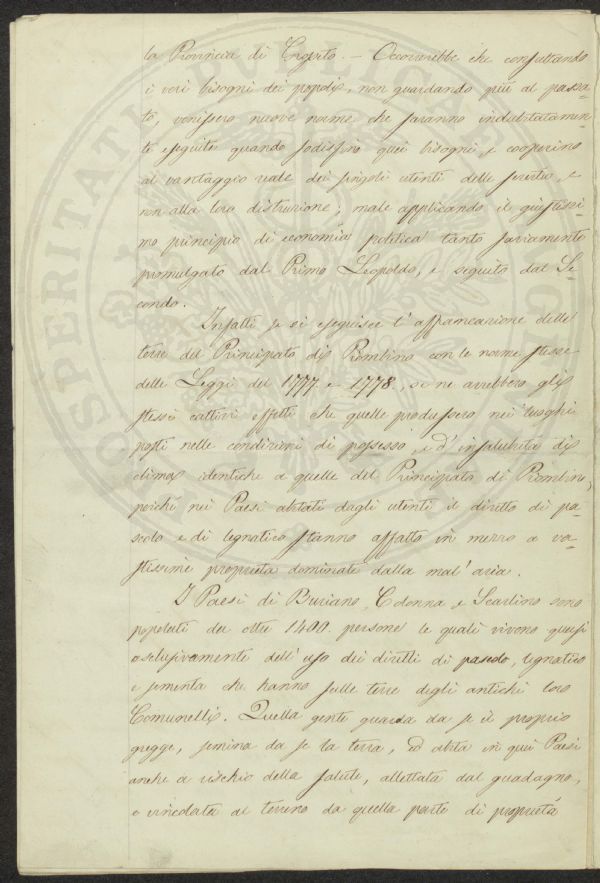 la Provincia di . – Occorrerebbe che consultando
i veri bisogni dei popoli, non guardando più al passa-
to, venissero nuove norme che saranno indubitatamen-
te eseguite quando sodisfino quei bisogni, e cooperino
al vantaggio reale dei singoli utenti delle servitù, e
non alla loro distruzione; male applicando il giustissi-
mo principio di economia politica tanto saviamente
promulgato dal Primo Leopoldo, e seguito dal Se-
condo.
Infatti se si eseguisce l'affrancazione delle
terre del Principato di Piombino con le norme stesse
delle Leggi del 1777. e 1778., se ne avrebbero gli
stessi cattivi effetti che quelle produssero nei luoghi
posti nelle condizioni di possesso, e d'insalubrità di
clima identiche a quelle del Principato di Piombino,
poiché nei Paesi abitati dagli utenti il diritto di pa-
scolo e di legnatico stanno affatto in mezzo a va-
stissime proprietà dominate dalla mal'aria.
I Paesi di Buriano, Colonna e Scarlino sono
popolati da oltre 1400. persone le quali vivono quasi
esclusivamente dell'uso dei diritti di pascolo, legnatico
e sementa che hanno sulle terre degli antichi loro
Comunelli. Quella gente guarda da se il proprio
gregge, semina da se la terra, ed abita in quei Paesi
anche a rischio della salute, allettata dal guadagno,
e vincolata al terreno da quella parte di proprietà
PROSPERITATI PUBLICAE AUGENDAE